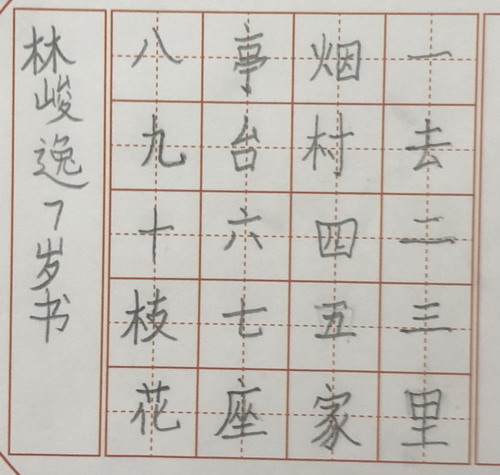 一去二三里
烟村四五家
亭台六七座
八九十枝花
林峻逸7岁书